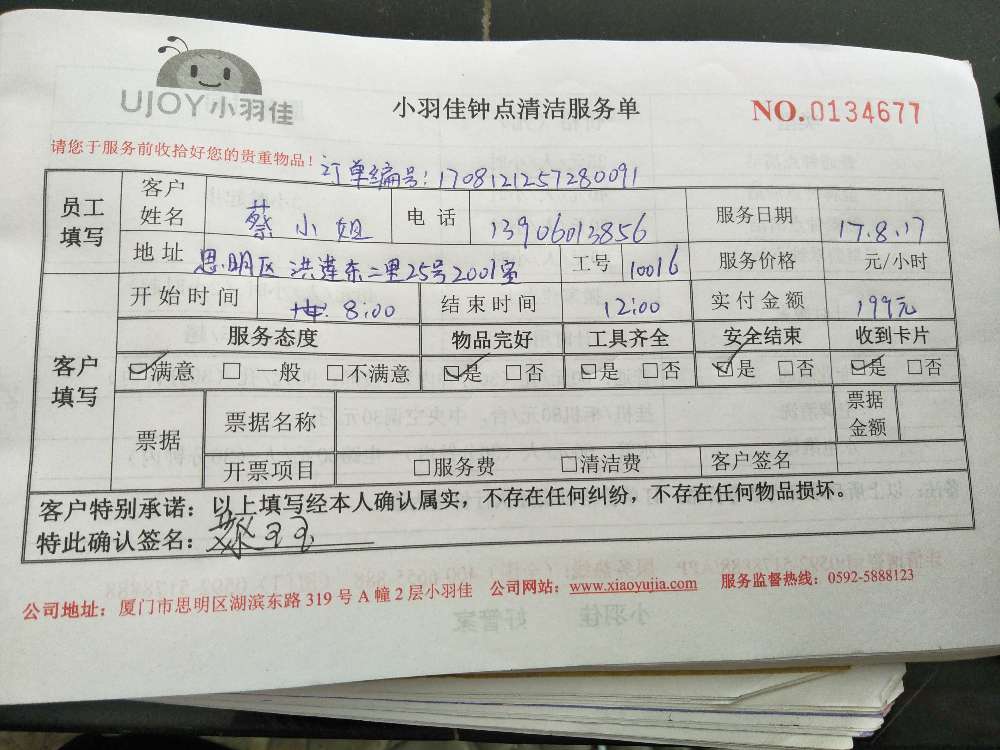 UJOY小羽佳
小羽佳钟点清洁服务单
NO.0134677
请您于服务前收拾好您的贵重物品！
订单编号：1708121257280091
员工填写 客户姓名 蔡小姐 电话 13906013856 服务日期 17.8.17
地址 思明区洪莲东二里25号2001室 工号 10016 服务价格 元/小时
开始时间 8:00 结束时间 12:00 实付金额 199元
客户填写 服务态度 物品完好 工具齐全 安全结束 收到卡片
☑满意 □一般 □不满意 ☑是 □否 ☑是 □否 ☑是 □否 ☑是 □否
票据 票据名称 票据金额
开票项目 □服务费 □清洁费 客户签名
客户特别承诺：以上填写经本人确认属实，不存在任何纠纷，不存在任何物品损坏。
特此确认签名：
公司地址：厦门市思明区湖滨东路 319 号 A 幢 2 层小羽佳 公司网站：www.xiaoyujia.com 服务监督热线：0592-5888123